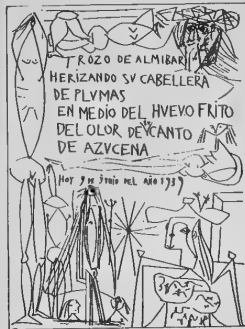 TROZO DE ALMIBAR
HERIZANDO SV CABELLERA
DE PLVMAS
EN MEDIO DEL HVEVO FRITO
DEL OLOR DE CANTO
DE AZVCENA
HOY 9 DE DEL AÑO 1939